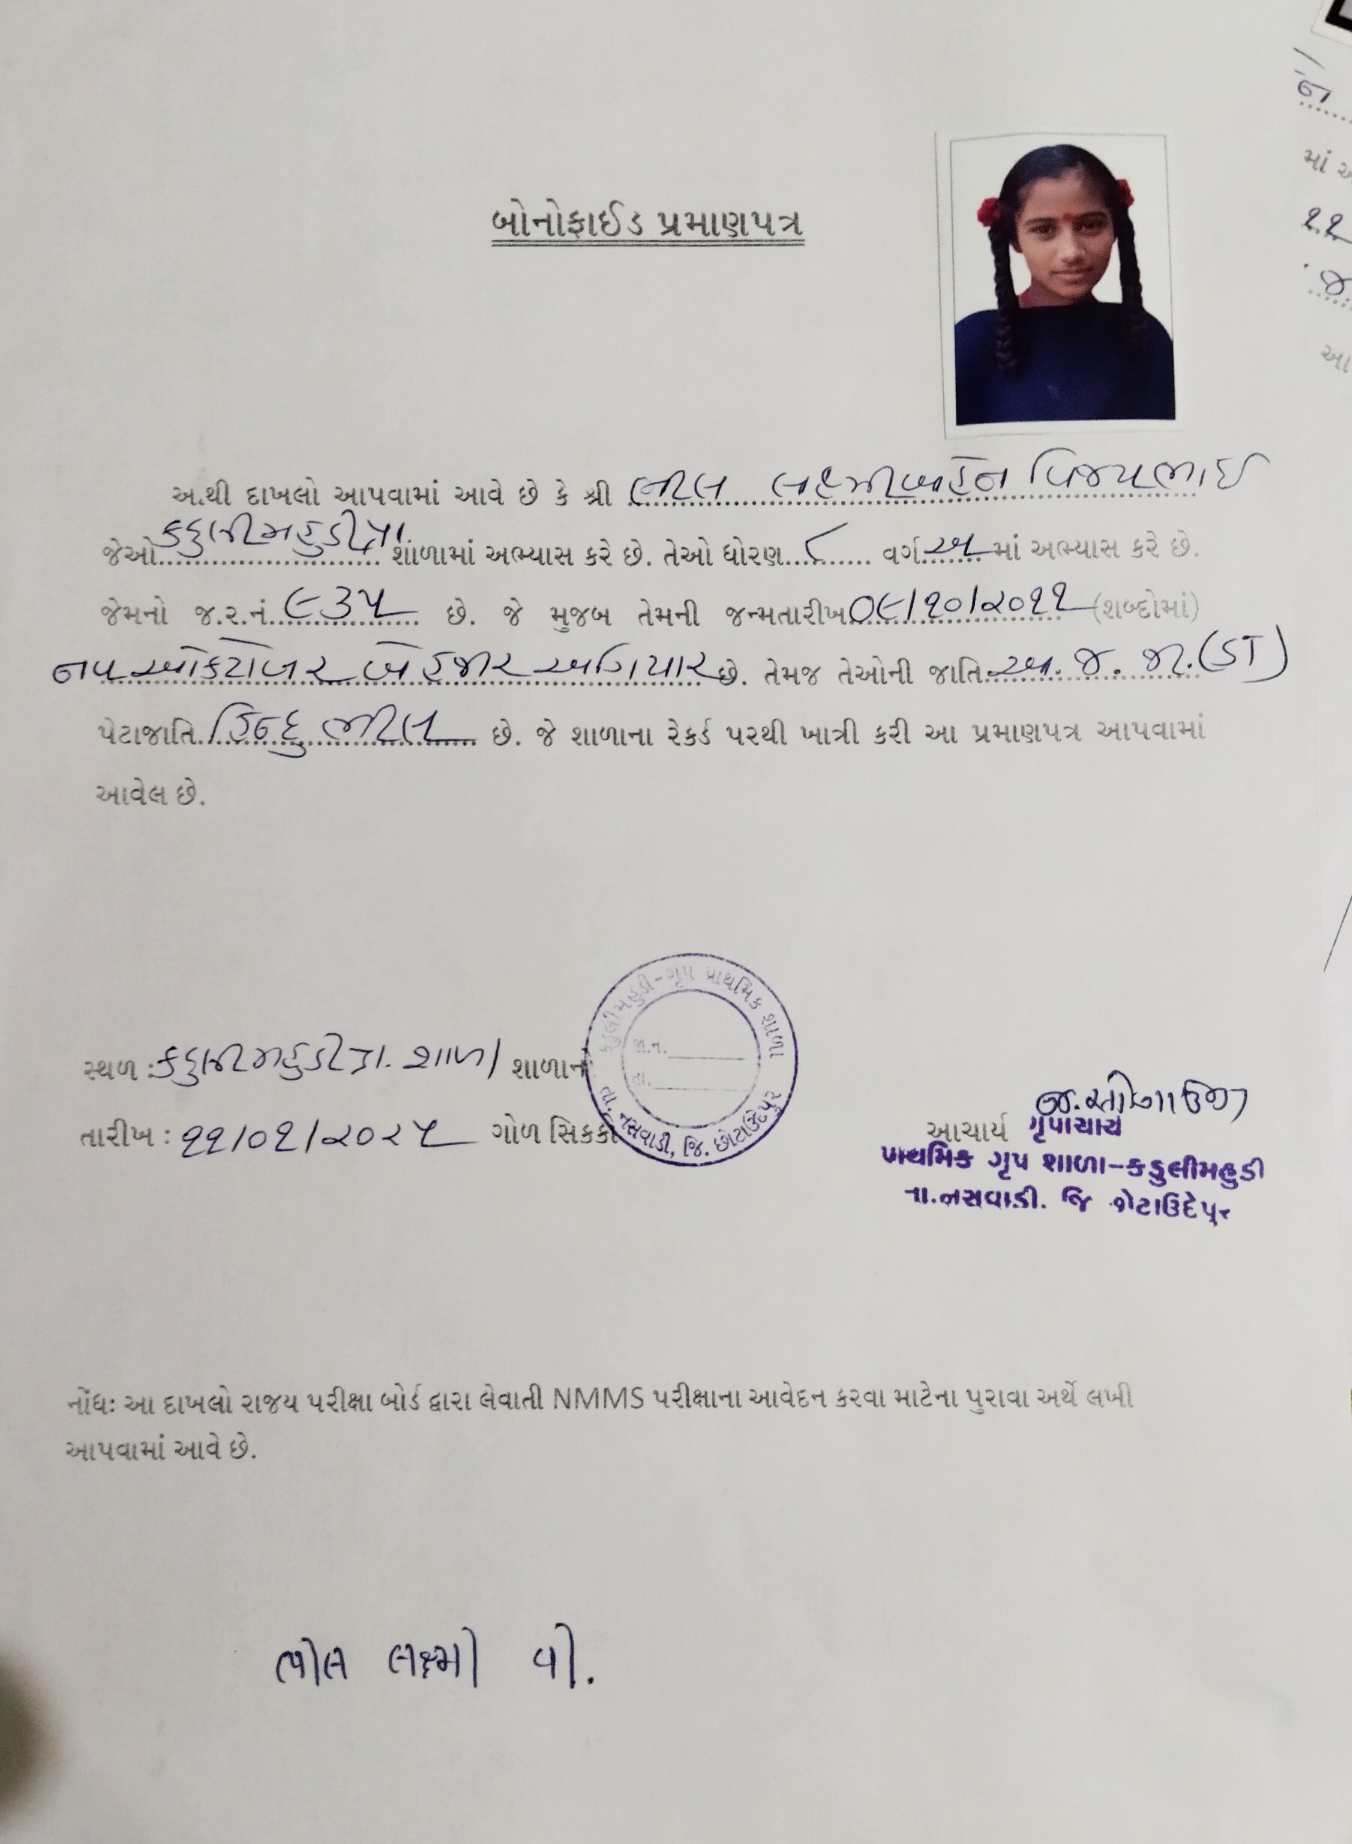 બોનોફાઈડ પ્રમાણપત્ર
અ.થી દાખલો આપવામાં આવે છે કે શ્રી ભીલ લક્ષ્મીબહેન વિજયભાઈ
જેઓ કડુલીમહુડી પ્રા. શાળામાં અભ્યાસ કરે છે. તેઓ ધોરણ ૮ વર્ગ અ માં અભ્યાસ કરે છે.
જેમનો જ.ર.નં. ૯૩૫ છે. જે મુજબ તેમની જન્મતારીખ ૦૯/૧૦/૨૦૧૧ (શબ્દોમાં)
નવ ઓક્ટોબર બે હજાર અગિયાર છે. તેમજ તેઓની જાતિ અ. જ. જા. (ST)
પેટાજાતિ હિન્દુ ભીલ છે. જે શાળાના રેકર્ડ પરથી ખાત્રી કરી આ પ્રમાણપત્ર આપવામાં
આવેલ છે.
કડુલીમહુડી-ગૃપ પ્રાથમિક શાળા
જા.ન.
તા.
તા. નસવાડી, જિ. છોટાઉદેપુર
સ્થળ : કડુલીમહુડી પ્રા. શાળા શાળાનો
તારીખ : ૧૧/૦૧/૨૦૨૫ ગોળ સિક્કો
આચાર્ય ગૃપાચાર્ય
પ્રાથમિક ગૃપ શાળા-કડુલીમહુડી
તા.નસવાડી. જિ છોટાઉદેપુર
નોંધઃ આ દાખલો રાજય પરીક્ષા બોર્ડ દ્વારા લેવાતી NMMS પરીક્ષાના આવેદન કરવા માટેના પુરાવા અર્થે લખી
આપવામાં આવે છે.
ભીલ લક્ષ્મી વી.